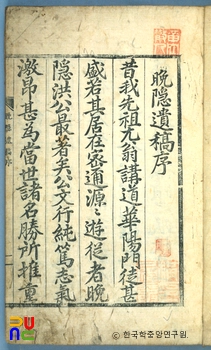 晚隱遺稿序
昔我先祖尤翁講道華陽門徒甚
盛若其居在源〻遊從者晚
隱洪公最著矣公文行純篤志氣
激昂甚為當世諸名勝所推重
© 한국학중앙연구원